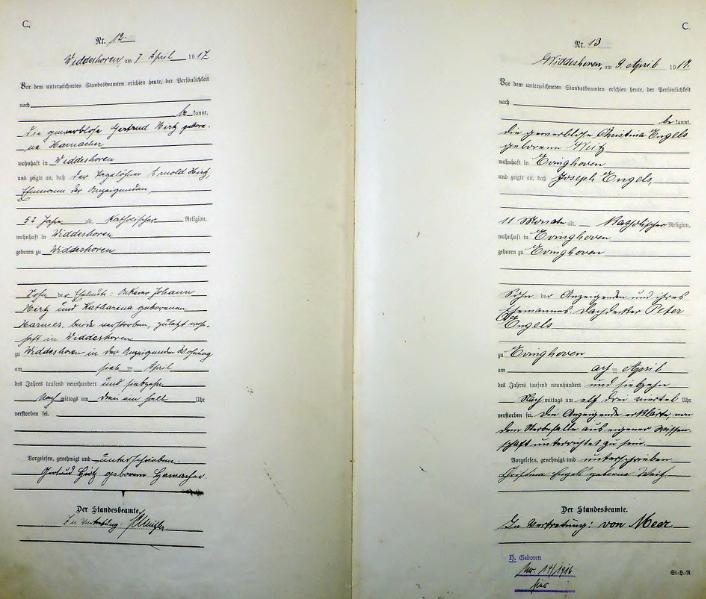 C.
Nr. 12
Widdeshoven am 7 April 1917
Vor dem unterzeichneten Standesbeamten erschien heute, der Persönlichkeit
nach
be kannt,
die gewerblose Gertrud Wirtz gebore-
ne Hamacher
wohnhaft in Widdeshoven
und zeigte an, daß der Tagelöhner Arnold Wirtz
Ehemann der Anzeigenden
52 Jahre alt Katholischer Religion,
wohnhaft in Widdeshoven
geboren zu Widdeshoven
Sohn der Eheleute: Johann
Wirtz und Katharina geborenen
Harmes, beide verstorben, zuletzt wohn-
haft in Widdeshoven
zu Widdeshoven in der Anzeigenden Wohnung
am sieb = April
des Jahres tausend neunhundert und siebzehn
Nach mittags um drei ein halb Uhr
verstorben sei.
Vorgelesen, genehmigt und unterschrieben
Gertrud Wirtz geborene Hamacher
Der Standesbeamte.
In Vertretung:
C.
Nr. 13
Widdeshoven, am 9. April 1917.
Vor dem unterzeichneten Standesbeamten erschien heute, der Persönlichkeit
nach
be kannt,
die gewerblose Christina Engels
geborene
wohnhaft in Evinghoven
und zeigte an, daß Joseph Engels,
11 Monate alt, Katholischer Religion,
wohnhaft in Evinghoven
geboren zu Evinghoven
Sohn der Anzeigenden und ihres
Ehemannes Dachdecker Peter
Engels
zu Evinghoven
am acht = April
des Jahres tausend neunhundert und siebzehn
Nach mittags um elf drei viertel Uhr
verstorben sei. Die Anzeigende erklärte, von
dem Sterbefalle aus eigener Wissen-
schaft unterrichtet zu sein.
Vorgelesen, genehmigt und unterschrieben
Christina Engels geborene
Der Standesbeamte.
In Vertretung: von Meer
H. Geboren
Nr. 14/1916
hier
St-H-R